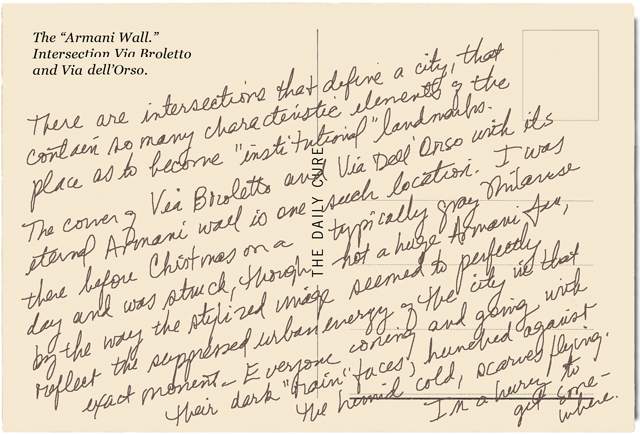 The "Armani Wall."
Intersection Via Broletto
and Via dell'Orso.
There are intersections that define a city, that
contain so many characteristic elements of the
place as to become "institutional" landmarks.
The corner of Via Broletto and Via Dell'Orso with its
eternal Armani wall is one such location. I was
there before Christmas on a typically gray Milanese
day and was struck, though not a huge Armani fan,
by the way the stylized image seemed to perfectly
reflect the suppressed urban energy of the city in that
exact moment - Everyone coming and going with
their dark "train" faces, hunched against
the humid cold, scarves flying.
In a hurry to
get some-
where.
THE DAILY CURE